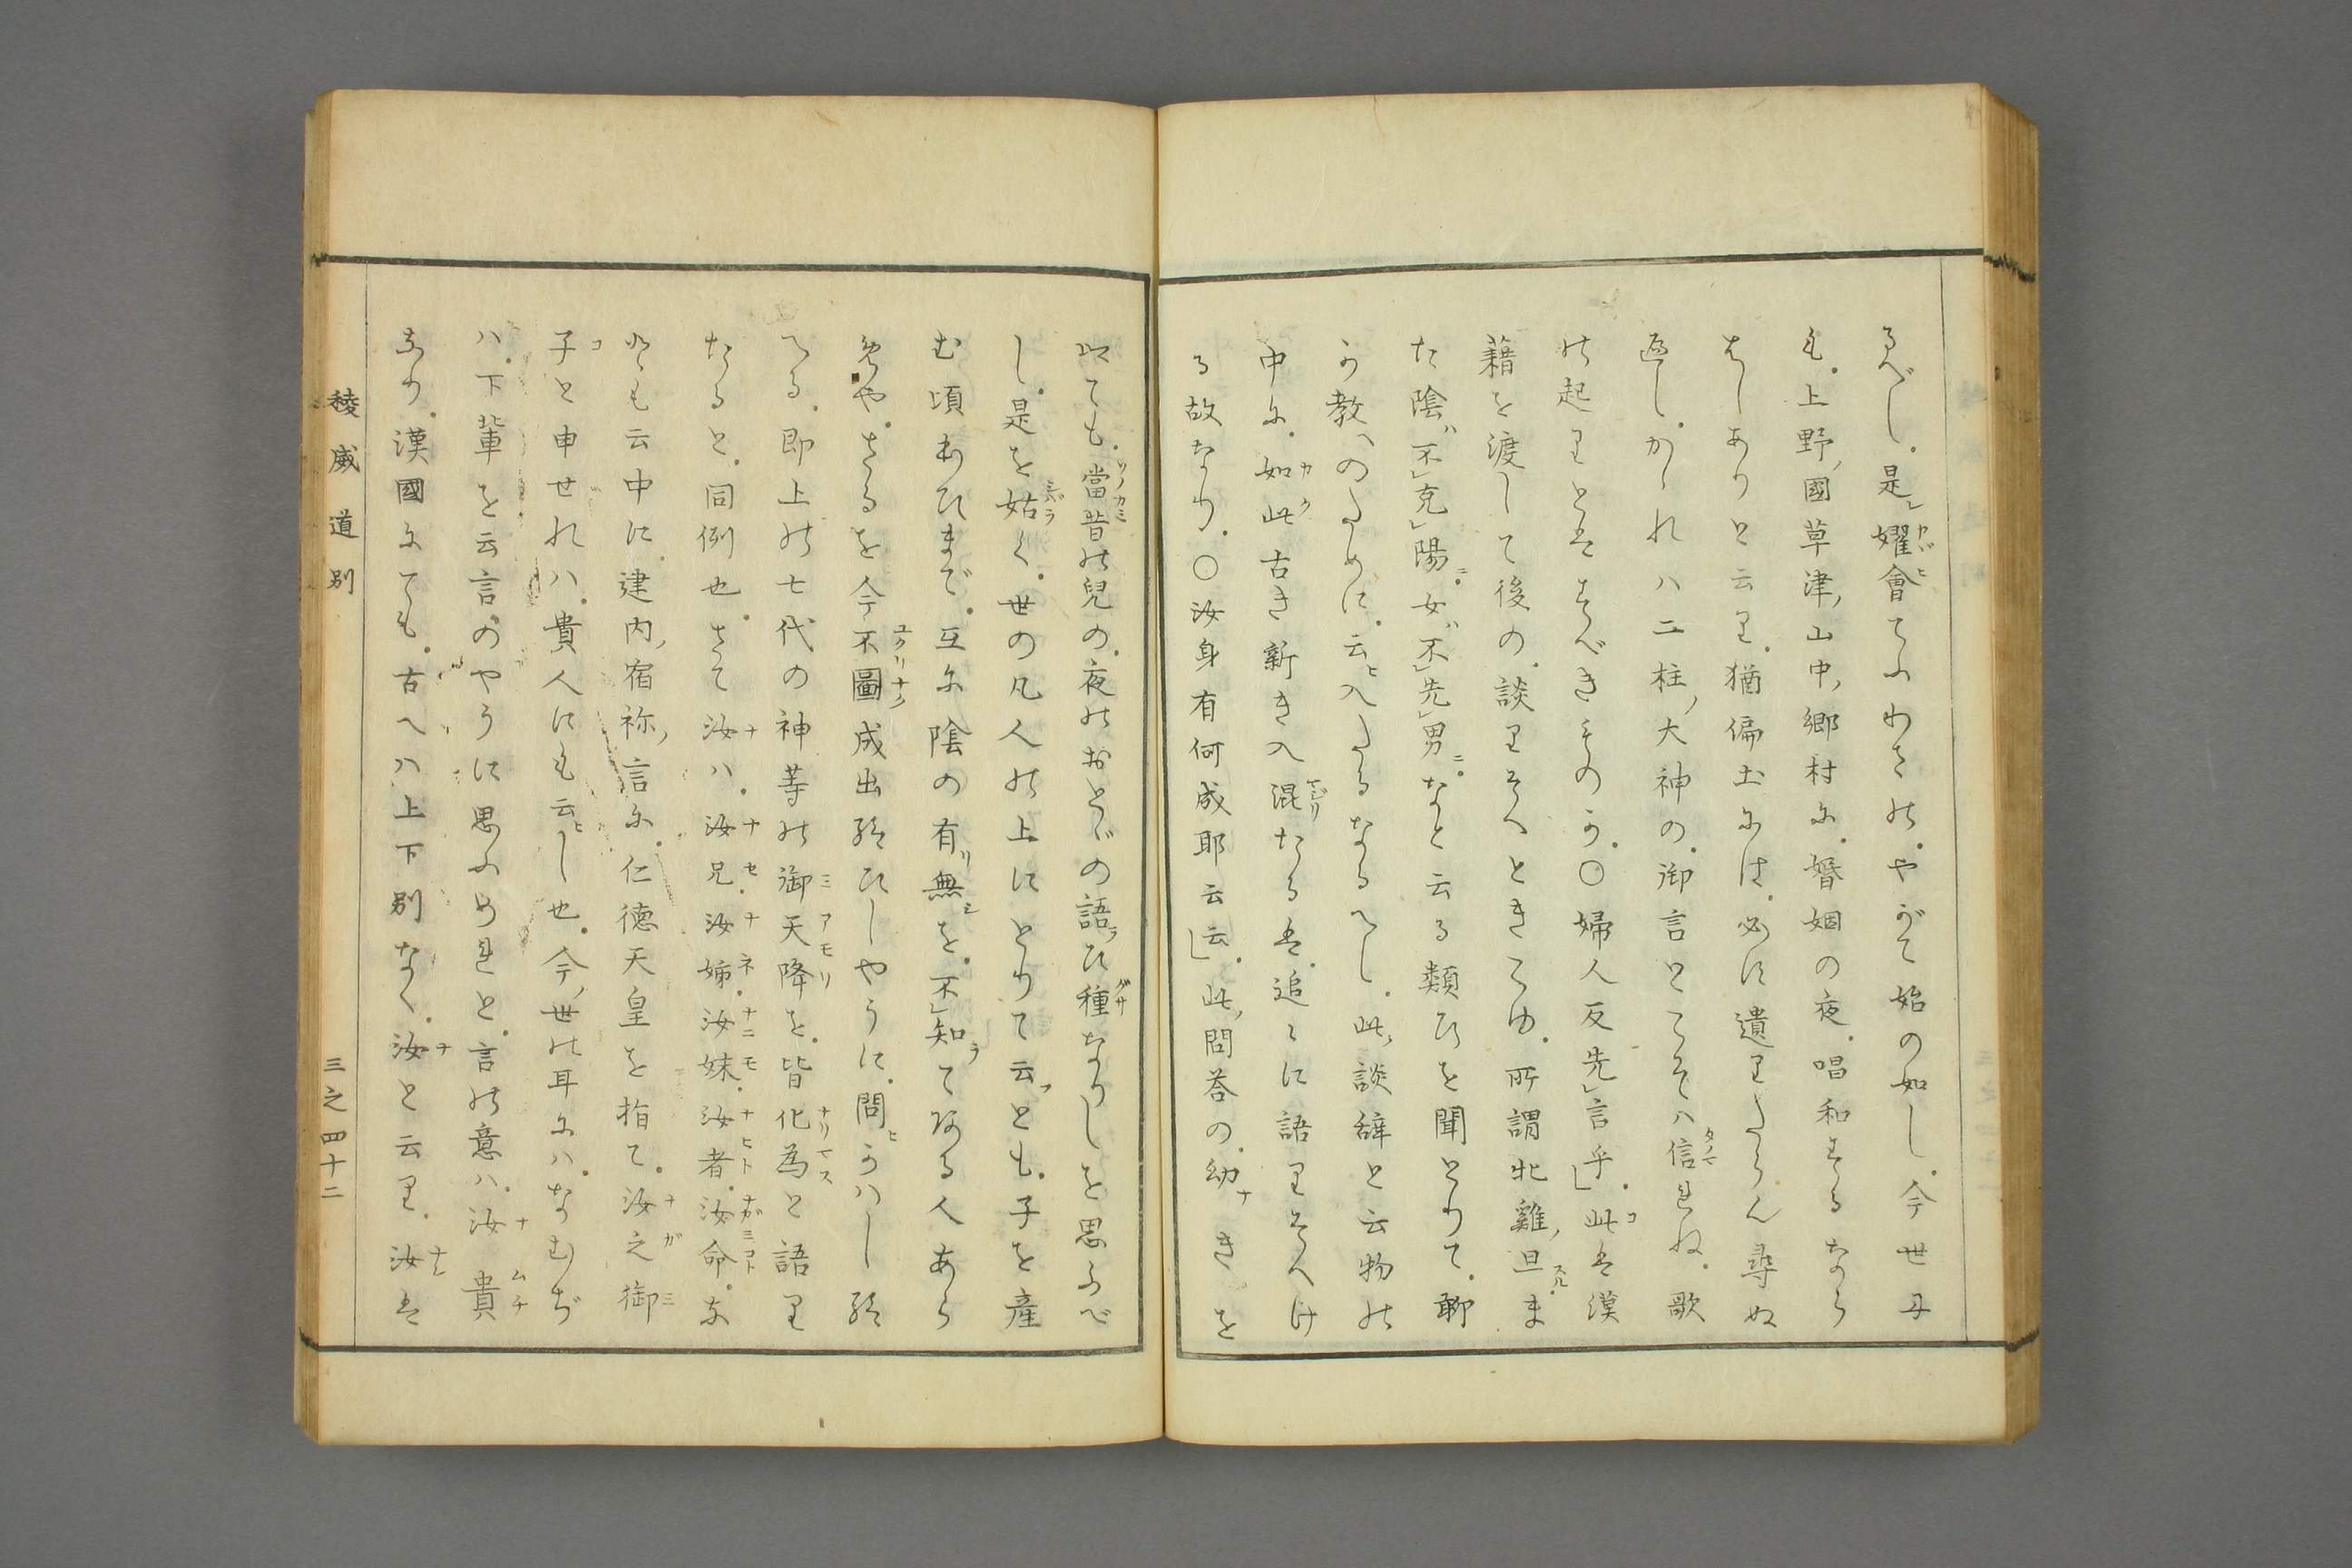 るべし。是嬥會てふわざの。やがて始の如し。今世母
も。上野國草津山中郷村尓。婚姻の夜。唱和するなら
はしありと云り。猶偏土尓は。必に遺りたらん尋ぬ
返し。かゝれハ二柱大神の。御言とこそハ信まれぬ。歌
の起りとはすべきものか。○婦人反先言乎」。此は漢
籍を渡して後の。談りそへときこゆ。所謂牝雞旦ま
た陰不克陽。女不先男。なと云る類ひを聞とりて。聊
か教への為めに。云入たるなるへし。此談辞と云物の
中尓。如此古き新き入混たるは。追々に語りそへけ
る故なり。○汝身有何成耶云云」。此問荅の。幼きを
以ても。當昔の兒の。夜のおとゞの語ひ種なりしを思ふべ
し。是を姑く。世の凡人の上にとりて云とも。子を産
む頃あひまで。互尓陰の有無を。不知てある人あら
めや。さるを今不圖成出給ひしやうに。問かハし給
へる。即上の七代の神等の御天降を。皆化為と語り
たると。同例也。さて汝ハ。汝兄。汝姉。汝妹。汝者。汝命。な
ども云中に。建内宿祢言尓。仁徳天皇を指て。汝之御
子と申せれハ。貴人にも云し也。今世の耳尓ハ。なむぢ
ハ。下輩を云言のやうに思ふめれと。言の意ハ。汝貴
なり。漢國尓ても。古へハ上下別なく。汝と云り。汝は
稜威道別
三之四十二